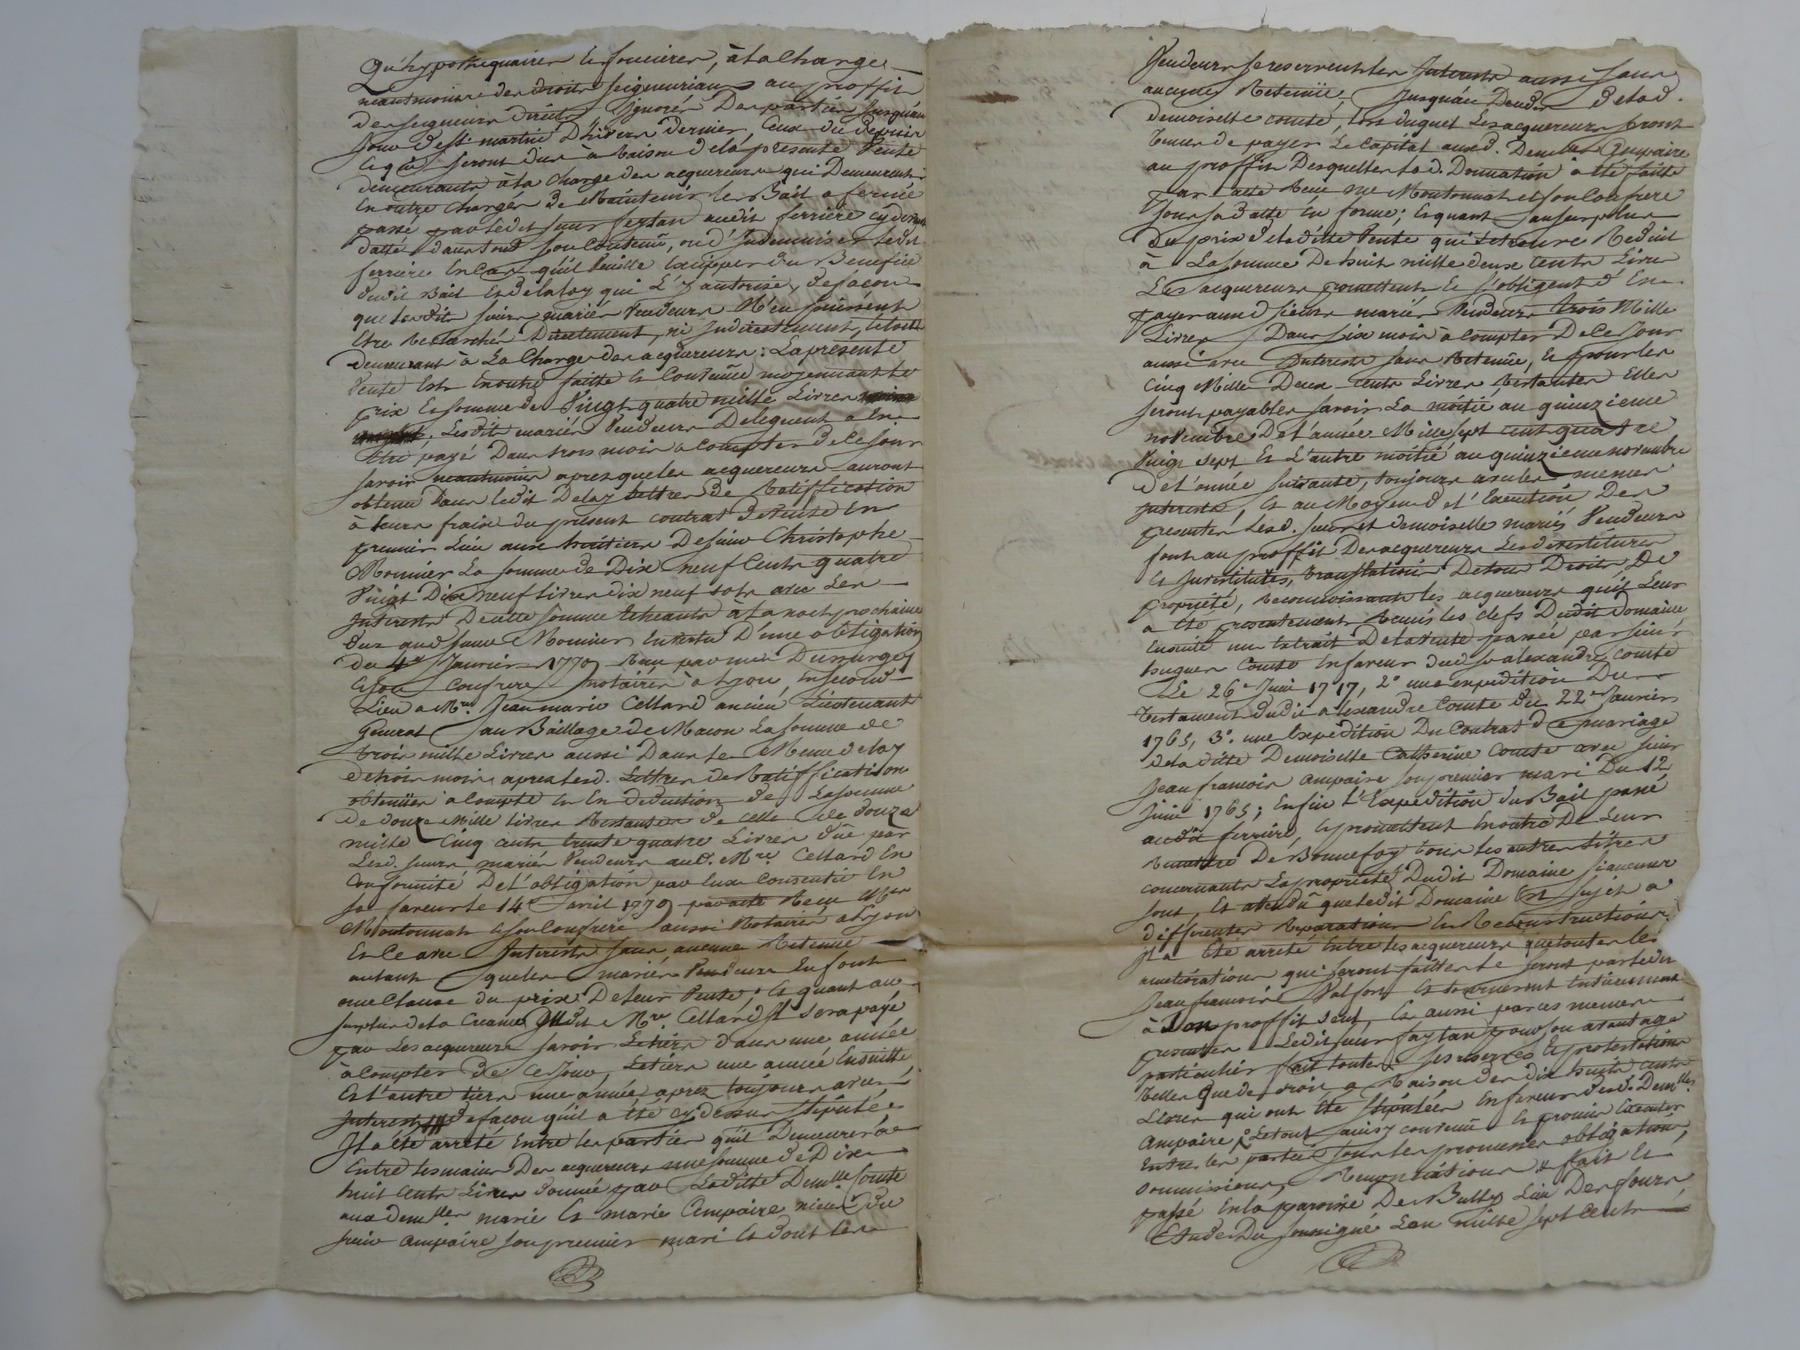 Qu'hypothequaires et foncieres, à la charge
neantmoins des droits seigneuriaux au proffit
des seigneurs directs ignorés des parties jusqu'au
jour de st martin d'hivers dernier, ceux du depuis
et qui seront dus à raison de la presente vente
demeurants à la charge des acquereurs qui demeurent
en outre chargés de maintenir le Bail a ferme
passé par ledit sieur faytan audit ferriere cy dessus
datté dans tout son contenû, ou d'indemniser ledit
ferriere en cas qu'il veuille exciper du Benefice
dudit Bail et de la loy qui l'y autorise, de façon
que lesdits sieurs mariés vendeurs n'en puissent
Etre Recherchés directement, ni indirectement, le tout
demeurant à la charge des acquereurs: La présente
vente est en outre faitte et convenüe moyennant le
prix et somme de vingt quatre mille livres
Lesdits mariés vendeurs deleguent a en
Etre payé dans trois mois a compter de ce jour
savoir neantmoins apres que les acquereurs auront
obtenu dans ledit delay lettres de ratiffication
à leurs frais du present contrat de vente en
premier lieu aux heritiers de sieur Christophe
Monnier la somme de dix neuf cents quatre
vingt dix neuf livres dix neuf sols avec les
interests de cette somme echeants à la noel prochaine
dus aud sieur Monnier en vertu d'une obligation
du 4e janvier 1779 Recu par me Dusurgey
et son confrere notaires à Lyon, en second
Lieu a Mre Jean marie Cellard ancien Lieutenant
General au Baillage de Macon la somme de
trois mille livres aussi dans le meme delay
de trois mois apres lesd. Lettres de Ratiffication
obtenües a compte et en deduction de la somme
de douze mille livres Restantes de celle de douze
mille cinq cents trente quatre livres düe par
Lesd. sieurs mariés vendeurs aud. Mre Cellard en
conformité de l'obligation par eux consentie en
sa faveur le 14e avril 1779 par acte Recu Me
Moutonnat et son confrere aussi Notaire à Lyon
Et ce avec interests sans aucune Retenue
autant que les mariés vendeurs en font
une clause du prix de leur vente; et quant au
surplus de la creance dudit Mre Cellard il sera payé
par les acquereurs savoir le tiers dans une année
à compter de ce jour, le tiers une année ensuitte
et l'autre tiers une année apres toujours avec
interest de façon qu'il a été cy dessus stipulé:
Il a été arreté entre les parties qu'il demeurera
Entre les mains des acquereurs une somme de dix
huit cents livres donnée par Laditte Demlle Comte
aux demlles marie et marie Ampaire nieces du
sieur Ampaire son premier mari et dont les
Vendeurs se reservent les interests aussi sans
aucune Retenüe jusqu'au deces de lad.
demoiselle comte, lors duquel les acquereurs seront
tenus de payer le capital auxd. Demlles Ampaire
au proffit desquelles lad. Donnation a été faitte
par acte Recu Me Moutonnat et son confrere
sous sa datte en forme; et quant au surplus
du prix de laditte vente qui se trouve Reduit
à la somme de huit mille deux cents livres
Les acquereurs promettent et s'obligent d'en
payer auxd sieurs mariés vendeurs trois mille
Livres dans six mois à compter de ce jour
aussi avec interests sans Retenüe, et pour les
cinq mille deux cents livres Restantes Elles
seront payables savoir la moitié au quinzieme
novembre de l'année mille sept cent quatre
vingt sept et l'autre moitié au quinzieme novembre
de l'année suivante, toujours avec les memes
interests, et au moyen de l'execution des
presentes lesd. sieur et demoiselle mariés vendeurs
font au proffit des acquereurs les devestitures
et investitures, translations de tous droits de
proprieté, reconnoissants les acquereurs qu'il leur
a été presentement Remis les clefs dudit domaine
ensuite un extrait de la vente passée par sieur
hugues Comte en faveur dud sr alexandre Comte
Le 26e Juin 1717, 2o une expedition du
testament dudit alexandre Comte du 22e janvier
1765, 3o. une expedition du contrat de mariage
de la ditte demoiselle Catherine Comte avec sieur
Jean francois Ampaire son premier mari du 12
juin 1765; enfin l'expedition du Bail passé
audit ferriere, et promettent en outre de leur
Remettre de Bonne foy tous les autres titres
concernants la proprieté dudit Domaine si aucuns
sont, Et attendû que ledit Domaine est sujet a
differentes reparations et Reconstructions
Il a été arreté entre les acquereurs que toutes les
ameliorations qui seront faittes le seront par ledit
Jean francois et tourneront entierement
à son proffit seul, Et aussi par ces memes
presentes Ledit sieur faytan pour son avantage
particulier fait toutes ses reserves et protestations
telles que de droit a Raison des dix huit cents
livres qui ont été stipulées en faveur desd. Demlles
Ampaire Le tout ainsi convenû et promis executer
entre les parties sous les promesses obligations,
soumissions, Renonciations & fait et
passé en la paroisse de Bully lieu des fours
Etude du soussigné L'an mille sept cents